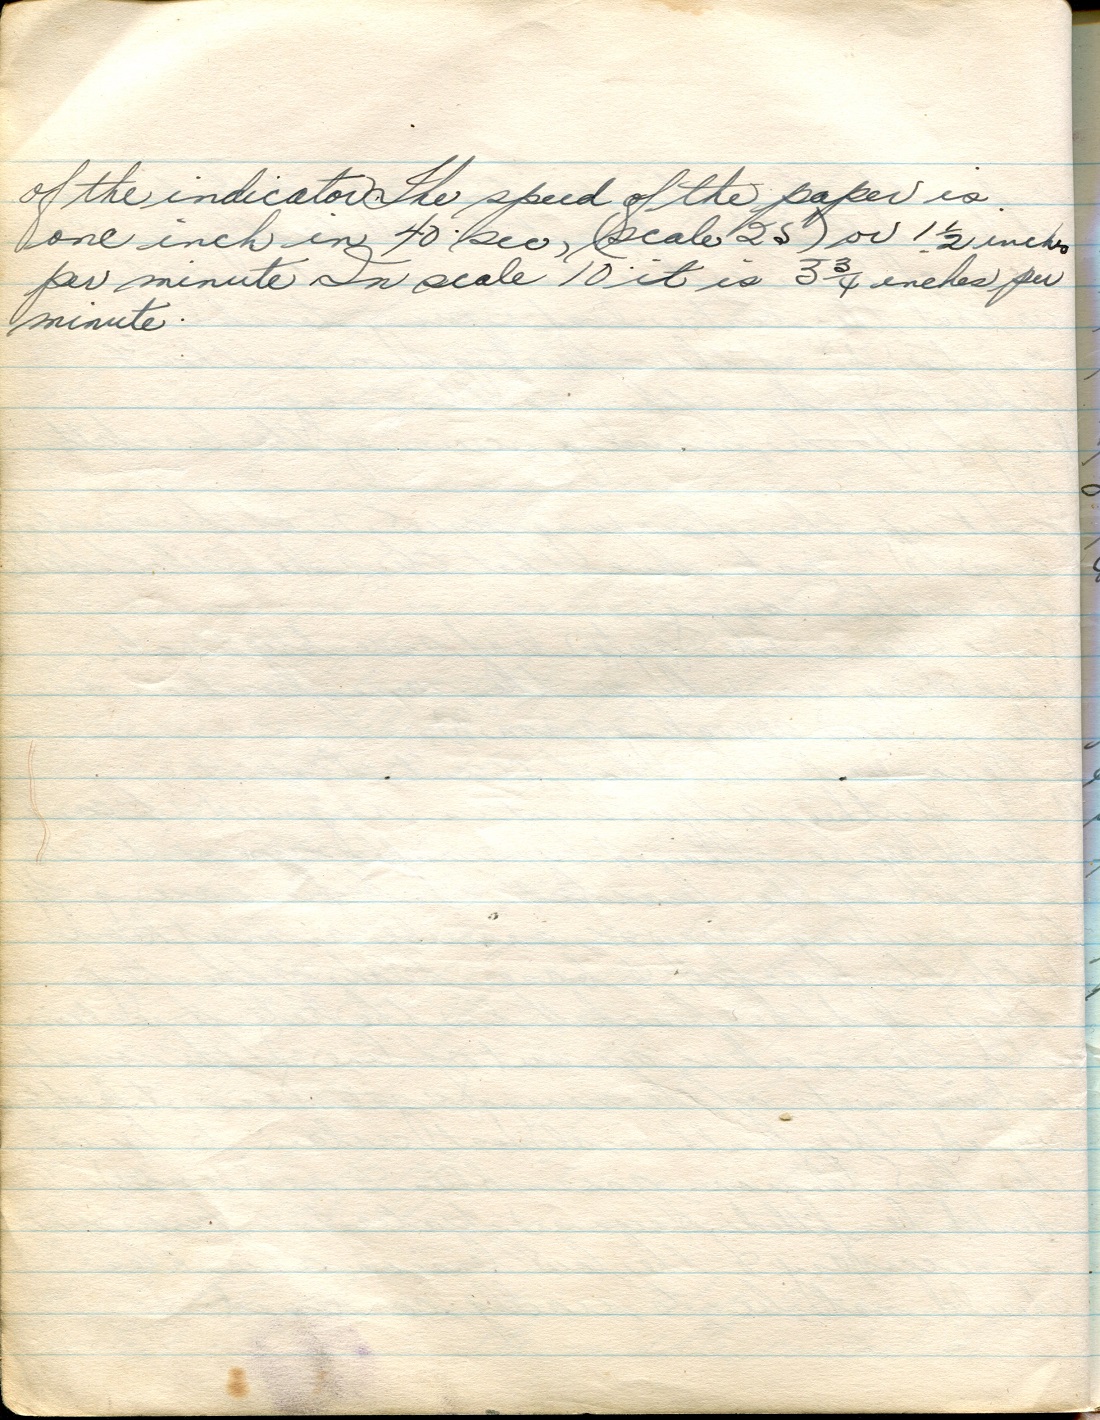 of the indicator. The speed of the paper is
one inch in 40 sec, (scale 25") or 1 1/2 inches
per minute In scale 10 it is 3 3/4 inches per
minute.